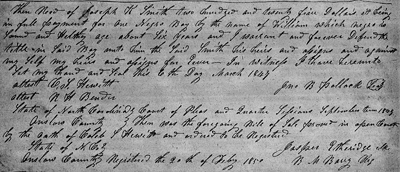 then Rec.d of Joseph H Smith two hundred and twenty five Dollars it being
in full payment for One Negro Boy by the name of William which negro is
sound and Healthy age about Six years and I warrant and forever Defend the
title in Said Boy unto him the Said Smith his heirs and assigns and against
my Self my heirs and assigns for Ever. In witness I have hereunto
Set my Hand and Seal this 6th Day March 1847
attest Hewitt Jno B Pollock Seal
attest
State of North Carolina Court of Pleas and Quarter Sessions September term
Onslow County Then was the foregoing Bill of Sale proved in open Court
by the oath of Caleb Hewitt and ordered to be Registered
State of N. C. Jasper Etheridge
Onslow County Registered the 20th of Feby